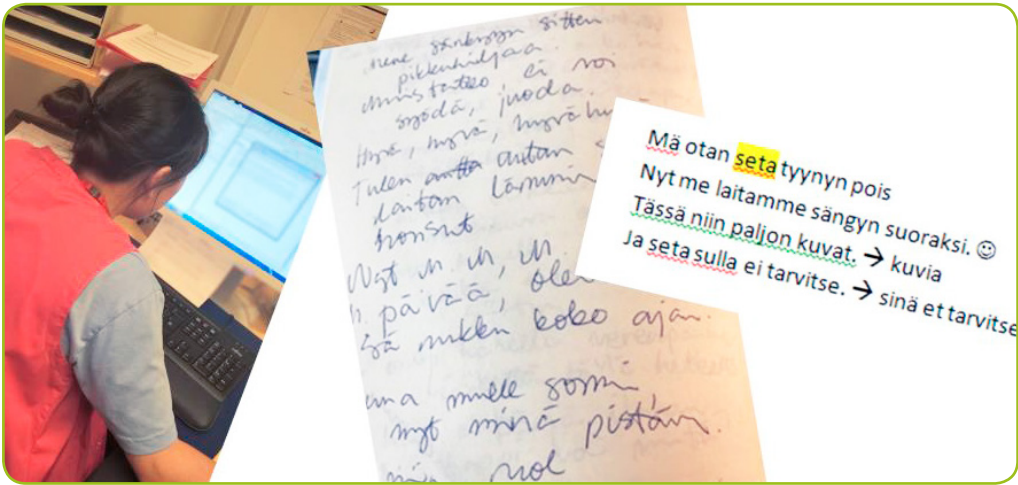 mene sänkyyn sitten
pikkuhiljaa.
ei voi
syödä, juoda.
Hyvä, hyvä, hyvä
Tulen autta autan
laitan lämmin
housut
Nyt
päivää, olen
koko ajan.
mulle sormi,
nyt minä pistän.
Mä otan seta tyynyn pois
Nyt me laitamme sängyn suoraksi. ☺
Tässä niin paljon kuvat. → kuvia
Ja seta sulla ei tarvitse. → sinä et tarvitse